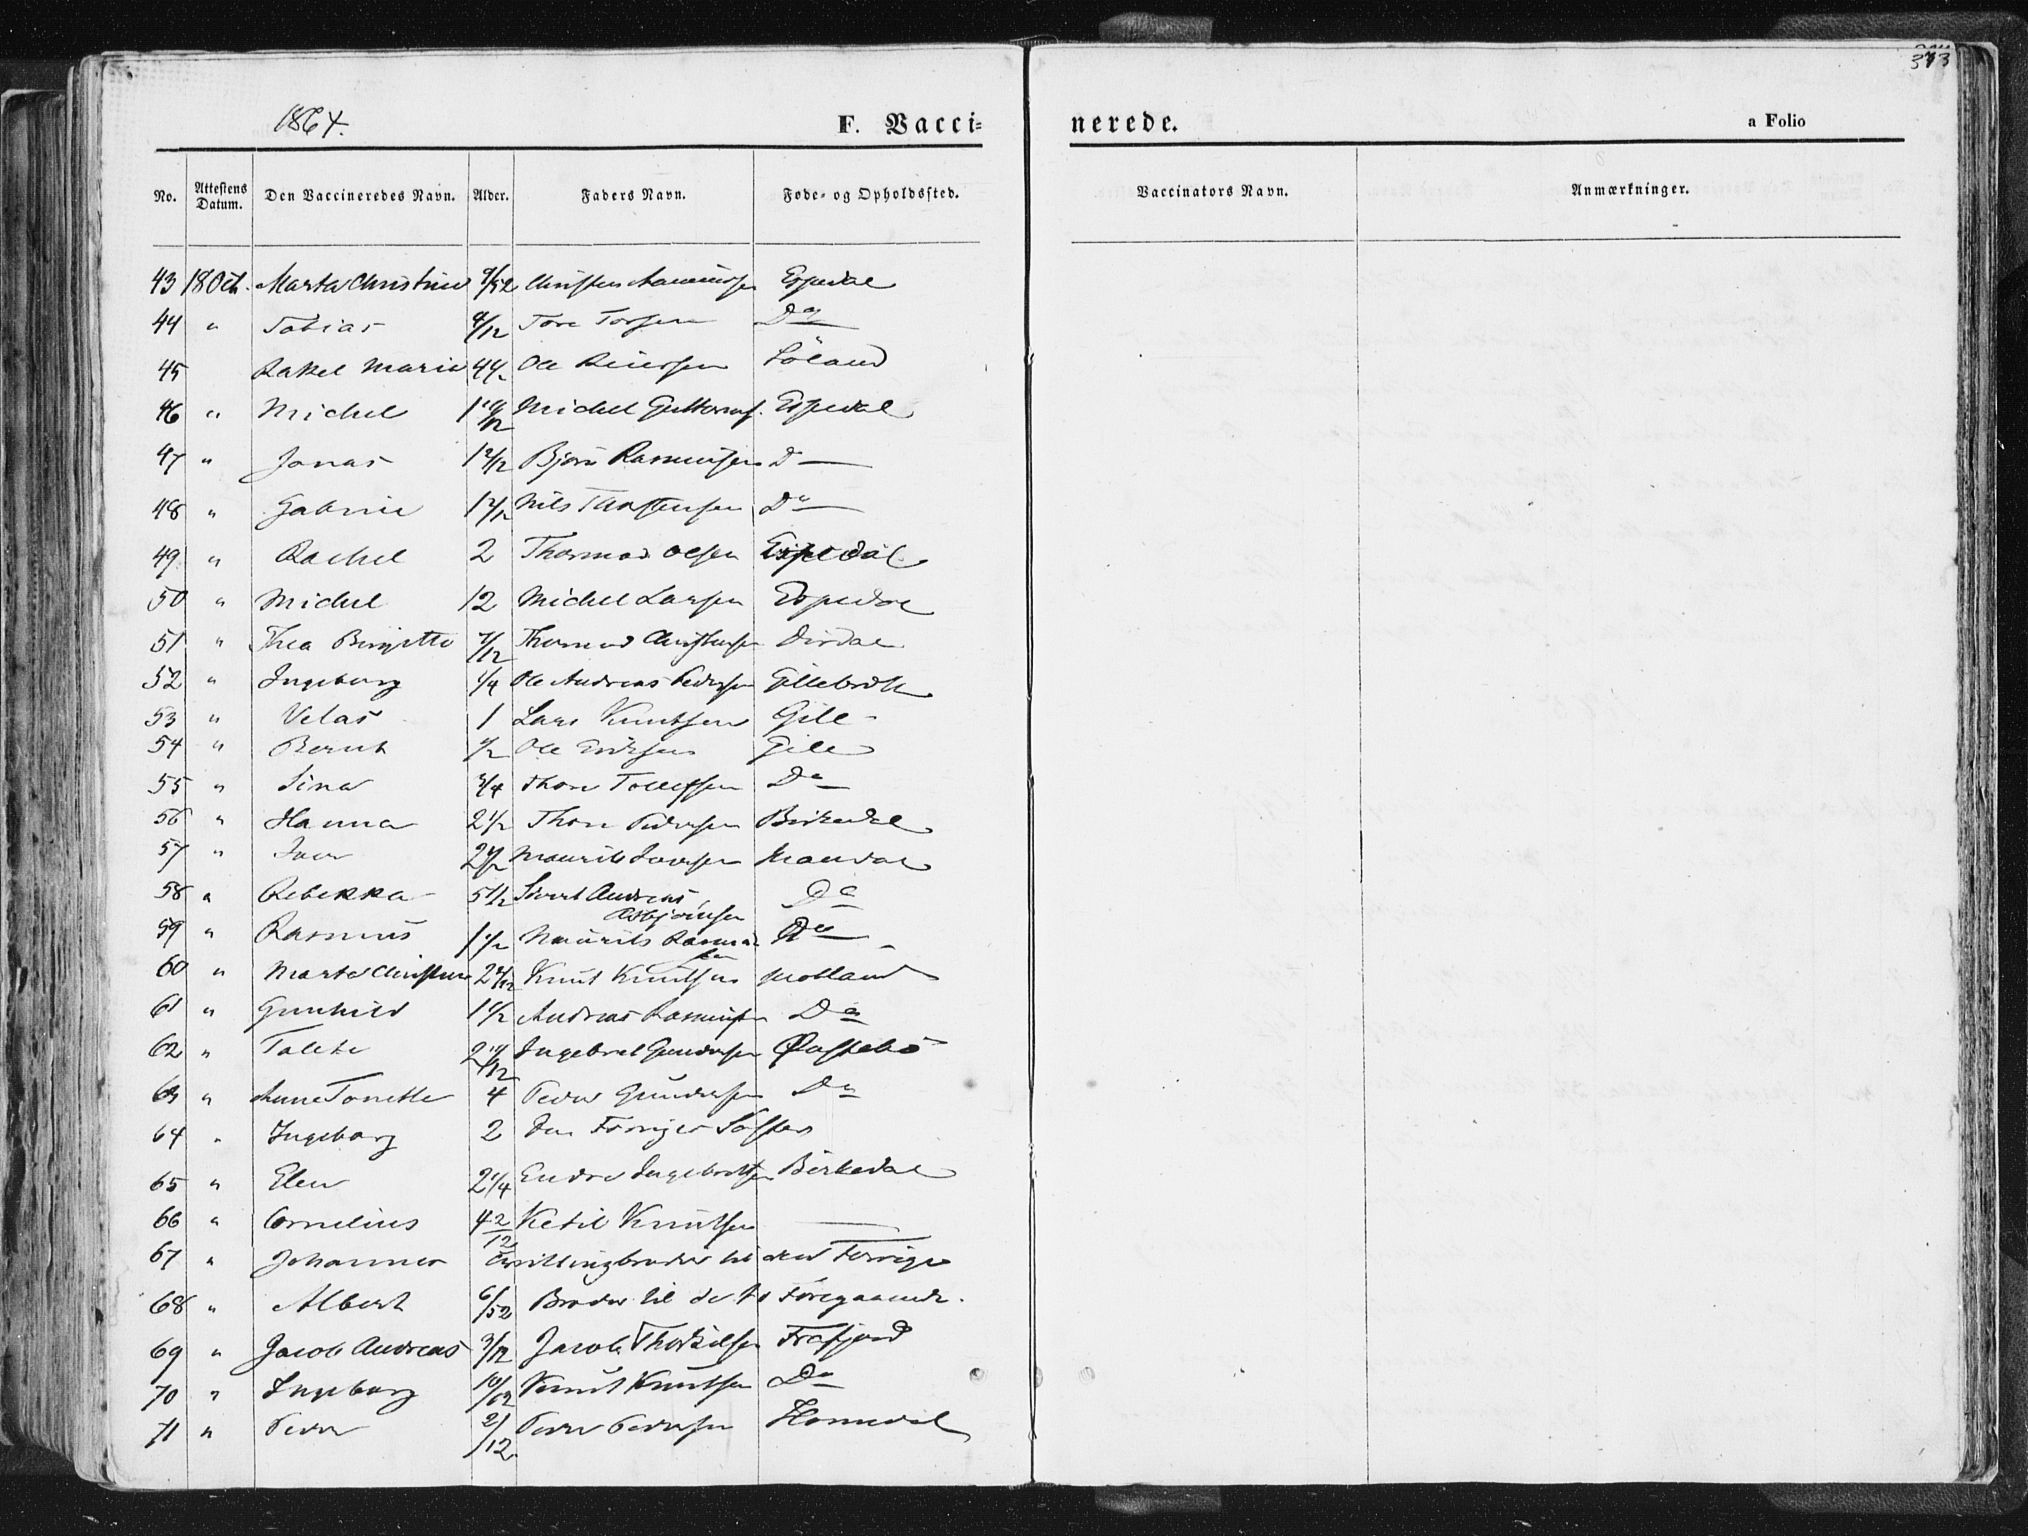 373
1864. F. Vacci= nerede. a Folio
No. Attestens Datum. Den Vaccineredes Navn. Alder. Faders Navn. Føde= og Opholdssted. Vaccinators Navn. Anmærkninger.
43 18 Oct. Marta Christine 9/52 Espedal
44 " Tobias 4/12 Tore Torsen Do
45 Rakel Marie Ole Reiersen Löland
46 " Michel 1 10/12 Michel Guttorms. Espedal
47 " Jonas Bjørn Rasmussen D
48 " Nils Thorstensen Do
49 " Rachel 2 Thomas Olsen Espedal
50 " Michel 12 Michel Larsen Espedal
51 " Thea Birgitte 7/12 Thomas Christensen Dirdal
52 " Ingeborg 1/4 Ole Andreas Pedersen
53 " Velas 1 Lars Knutsen Gile
54 " Bernt 1/2 Ole Eriksen Gile
55 " Sina 3/4 Thore Tollefsen Do
56 " Hanna 2 1/2 Thore Pedersen Birkedal
57 " Iver 2 1/2 Maurits Iversen Maudal
58 " Rebekka 5 1/2 Sivert Andreas
Asbjörnsen Do
59 " Rasmus 1 1/2 Maurits Rasmus
sen Do
60 " Marta Christine Knut Knutsen Molland
61 " Gunhild 1 1/2 Andreas Rasmussen Do
62 " Talete 2 10/12 Ingebret Gundersen
63 " Anne Tonette 4 Peder Gundersen Do
64 " Ingeborg 2 Den Forriges Söster
65 " Elen 2 1/4 Endre Ingebretsen Birkedal
66 " Cornelius 4 2/12 Ketil Knutsen
67 " Johannes Tvillingbroder til den Forrige
68 " Albert 6/52 Broder til de to Foregaaende.
69 " Jacob Andreas 3/12 Jacob Thorkilsen Frafjord
70 " Ingeborg 10/52 Knut Knutsen Do
71 " Peder 2/12 Peder Pedersen